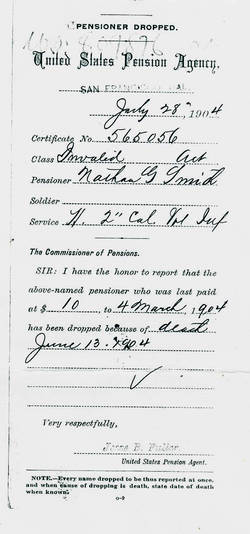 PENSIONER DROPPED.
United States Pension Agency,
SAN FRANCISCO, CAL.
July 28" 1904
Certificate No. 565056
Class Invalid Act
Pensioner Nathan G Smith
Soldier
Service H. 2" Cal Vol Inf
The Commissioner of Pensions.
SIR: I have the honor to report that the
above-named pensioner who was last paid
at $ 10 to 4 March, 1904
has been dropped because of death
June 13. 1904
Very respectfully,
Jesse B. Fuller
United States Pension Agent.
NOTE.—Every name dropped to be thus reported at once,
and when cause of dropping is death, state date of death
when known.